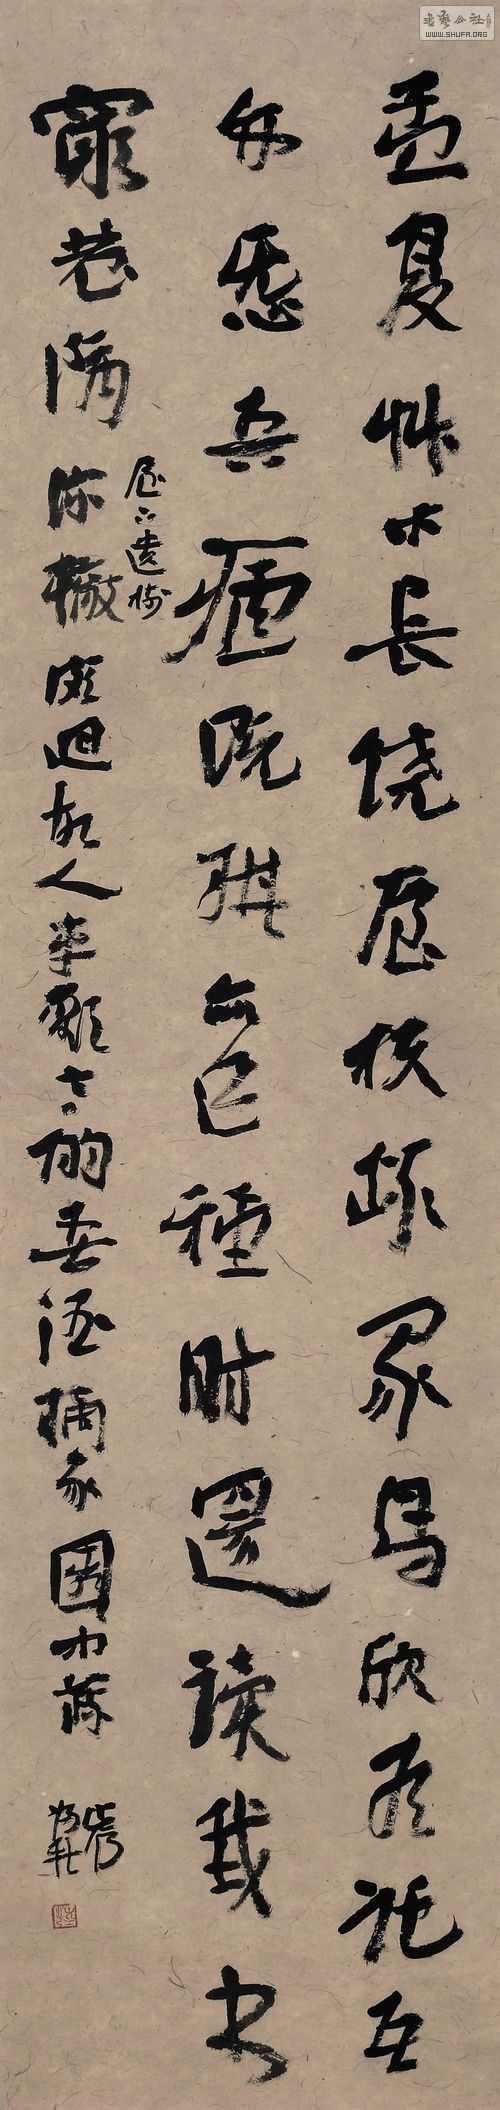 孟夏艸木長繞屋扶疎眾鳥欣有託吾
亦愛吾廬既耕亦已種時還讀我書
屋下遺樹
窮巷隔深轍頗迴故人車歡言酌春酒摘我園中蔬
張
書藝公社
WWW.SHUFA.ORG